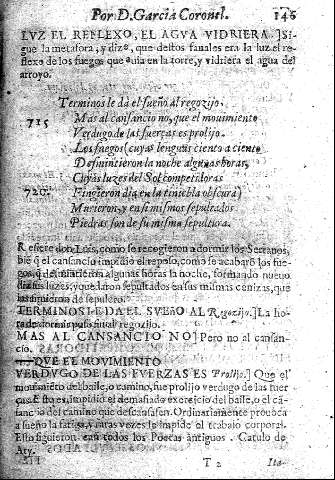 Por D. Garcia Coronel. 146
LVZ EL REFLEXO, EL AGVA VIDRIERA.] Si-
gue la metafora, y dize, que destos fanales era la luz el re-
flexo de los fuegos que auia en la torre, y vidriera el agua del
arroyo.
Terminos le dà el sueño al regozijo.
715 Mas al cansancio no, que el mouimiento
Verdugo de las fuerças es prolijo.
Los fuegos (cuyas lenguas ciento a ciento
Desmintieron la noche algunas horas,
Cuyas luzes del Sol competidoras
720. Fingieron dia en la tiniebla obscura)
Murieron, y en si mismos sepultados
Piedras son de su misma sepultura.
Refiere don Luis, como se recogieron a dormir los Serranos,
biē q el cansancio impidiò el reposo, como se acabarō los fue-
gos, q desmintieron algunas horas la noche, formando nueuo
dia sus luzes, y quedaron sepultados en sus mismas cenizas, que
las siruieron de sepulcro.
TERMINOS LE DA EL SVEÑO AL Regozijo.] La ho-
ra de dormir puso final regozijo.
MAS AL CANSANCIO NO] Pero no al cansan-
cio.
QVE EL MOVIMIENTO
VERDVGO DE LAS FVERZAS ES Prolijo.] Que el
mouimiēto del baile, o camino, fue prolijo verdugo de las fuer
ças. Esto es, impidiò el demasiado exercicio del baile, o el cā-
sancio del camino que descansassen. Ordinariamente prouoca
a sueño la fatiga, y raras vezes le impide el trabajo corporal.
Esto siguieron casi todos los Poetas antiguos. Catulo de
Aty.
T 2 Ita-